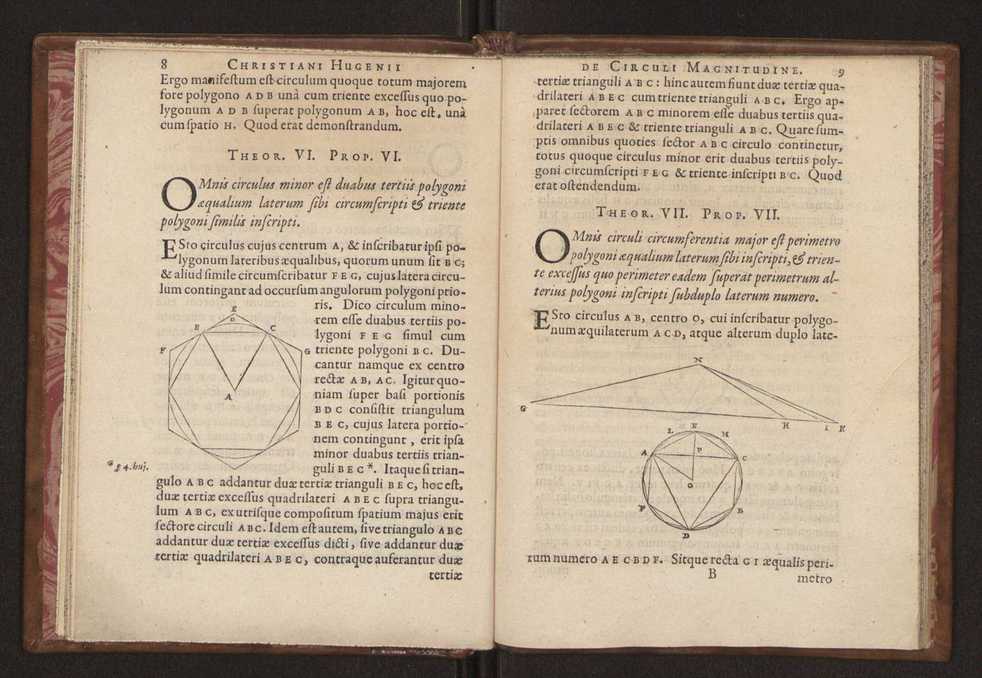 8 CHRISTIANI HUGENII
Ergo manifeſtum eſt circulum quoque totum majorem
fore polygono A D B unà cum triente exceſſus quo po-
lygonum A D B ſuperat polygonum A B, hoc eſt, unà
cum ſpatio H. Quod erat demonſtrandum.
THEOR. VI. PROP. VI.
OMnis circulus minor eſt duabus tertiis polygoni
æqualium laterum ſibi circumſcripti & triente
polygoni ſimilis inſcripti.
ESto circulus cujus centrum A, & inſcribatur ipſi po-
lygonum lateribus æqualibus, quorum unum ſit B C;
& aliud ſimile circumſcribatur F E G, cujus latera circu-
lum contingant ad occurſum angulorum polygoni prio-
ris. Dico circulum mino-
rem eſſe duabus tertiis po-
lygoni F E G ſimul cum
triente polygoni B C. Du-
cantur namque ex centro
rectæ A B, A C. Igitur quo-
niam ſuper baſi portionis
B D C conſiſtit triangulum
B E C, cujus latera portio-
nem contingunt, erit ipſa
minor duabus tertiis trian-
guli B E C *. Itaque ſi trian-
gulo A B C addantur duæ tertiæ trianguli B E C, hoc eſt,
duæ tertiæ exceſſus quadrilateri A B E C ſupra triangu-
lum A B C, ex utriſque compoſitum ſpatium majus erit
ſectore circuli A B C. Idem eſt autem, ſive triangulo A B C
addantur duæ tertiæ exceſſus dicti, ſive addantur duæ
tertiæ quadrilateri A B E C, contraque auferantur duæ
tertiæ
E
D
B
C
F
G
A
4. huj.
DE CIRCULI MAGNITUDINE. 9
tertiæ trianguli A B C: hinc autem fiunt duæ tertiæ qua-
drilateri A B E C cum triente trianguli A B C. Ergo ap-
paret ſectorem A B C minorem eſſe duabus tertiis qua-
drilateri A B E C & triente trianguli A B C. Quare ſum-
ptis omnibus quoties ſector A B C circulo continetur,
totus quoque circulus minor erit duabus tertiis poly-
goni circumſcripti F E G & triente inſcripti B C. Quod
erat oſtendendum.
THEOR. VII. PROP. VII.
OMnis circuli circumferentia major eſt perimetro
polygoni æqualium laterum ſibi inſcripti, & trien-
te exceſſus quo perimeter eadem ſuperat perimetrum al-
terius polygoni inſcripti ſubduplo laterum numero.
ESto circulus A B, centro O, cui inſcribatur polygo-
num æquilaterum A C D, atque alterum duplo late-
N
G
H
I
K
L
E
M
A
P
C
O
F
B
D
rum numero A E C B D F. Sitque recta G I æqualis peri-
B metro